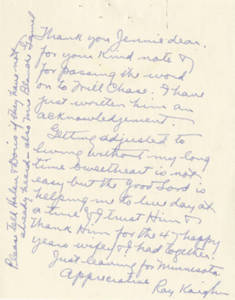 Thank you Jennie dear,
for your kind note &
for passing the word
on to Will Chase. I have
just written him an
acknowledgement.
Getting adjusted to
living without my long
time sweetheart is not
easy but the Good Lord is
helping me to live day at
a time & I trust Him &
thank Him for the 47 happy
years wifey & I had together.
Just leaving for Minnesota
Appreciative Ray
Please tell Helen & Doris if they have not
already heard